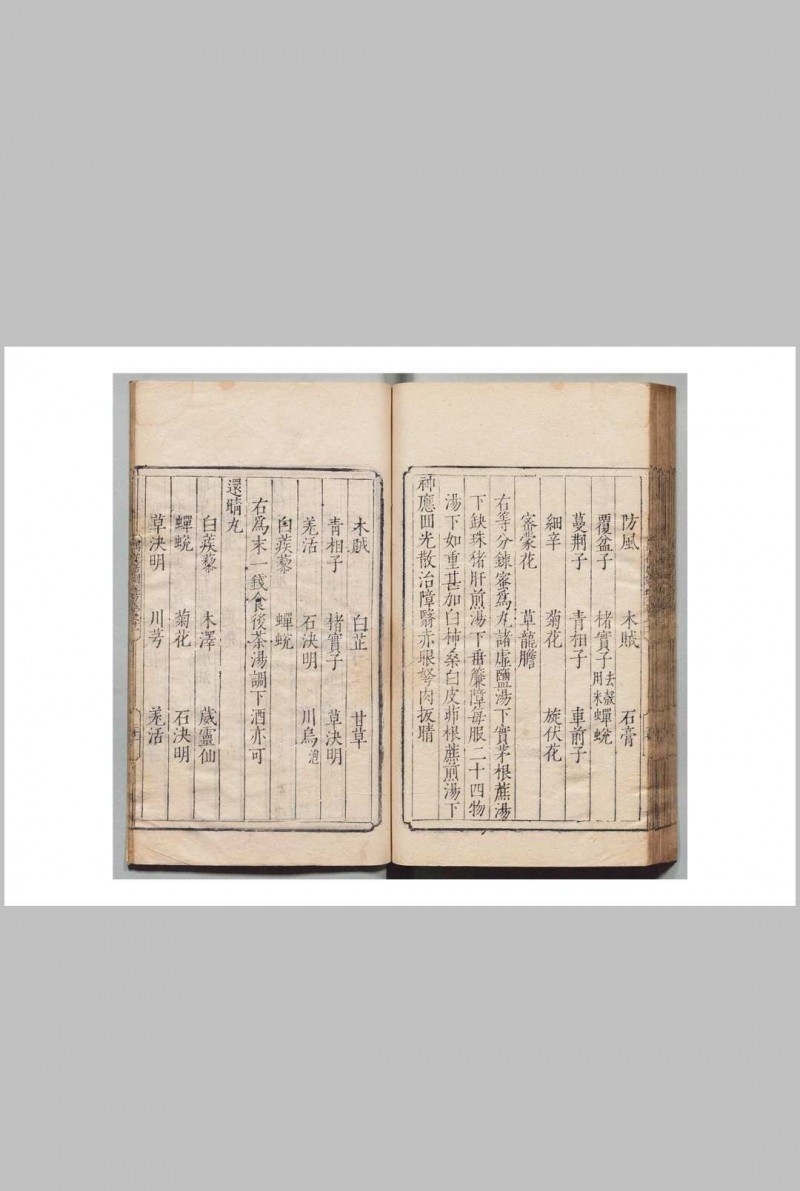 防風 木賊 石膏
覆盆子 楮實子去殼用米 蟬蛻
蔓荆子 青相子 車前子
細辛 菊花 旋伏花
密蒙花 草龍膽
右等分鍊蜜爲丸諸虛鹽湯下實茅根蔗湯
下缺珠猪肝煎湯下垂簾障每服二十四物
湯下如重甚加白柿桑白皮茆根蔗煎湯下
神應回光散治障翳赤眼弩肉扳睛
木賊 白芷 甘草
青相子 楮實子 草決明
羌活 石決明 川烏泡
白蒺藜 蟬蛻
右爲末一錢食後茶湯調下酒亦可
還睛丸
白蒺藜 木澤 葳靈仙
蟬蛻 菊花 石決明
草決明 川芎 羌活